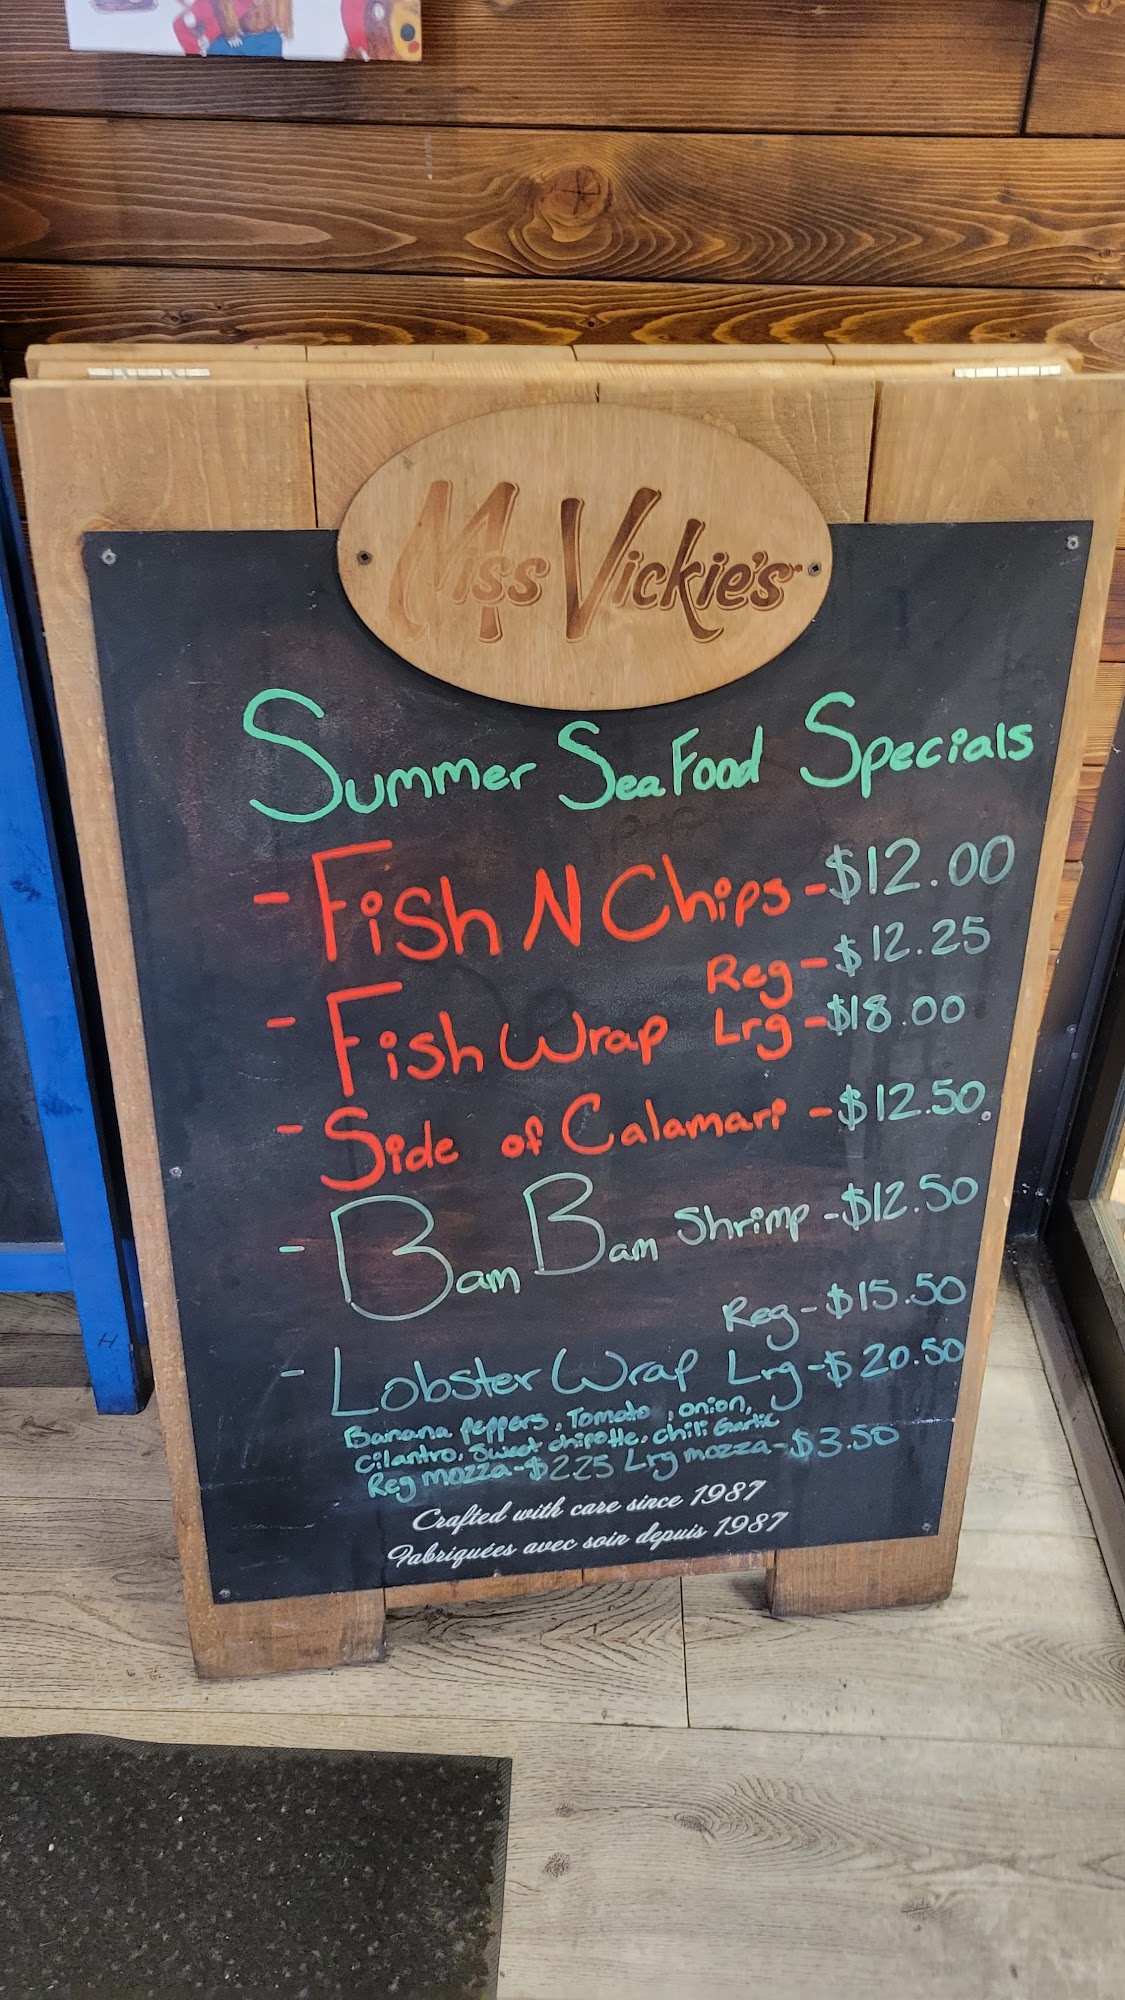 Miss Vickie's
Summer SeaFood Specials
- Fish N Chips - $12.00
Reg - $12.25
- Fish Wrap Lrg - $18.00
- Side of Calamari - $12.50
- Bam Bam Shrimp - $12.50
Reg - $15.50
- Lobster Wrap Lrg - $20.50
Banana Peppers, Tomato, onion,
cilantro, Sweet chipotle, chili Garlic
Reg mozza - $2.25 Lrg mozza - $3.50
Crafted with care since 1987
Fabriquées avec soin depuis 1987
H